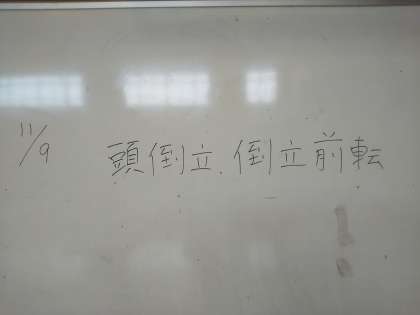 11/9 頭倒立、倒立前転